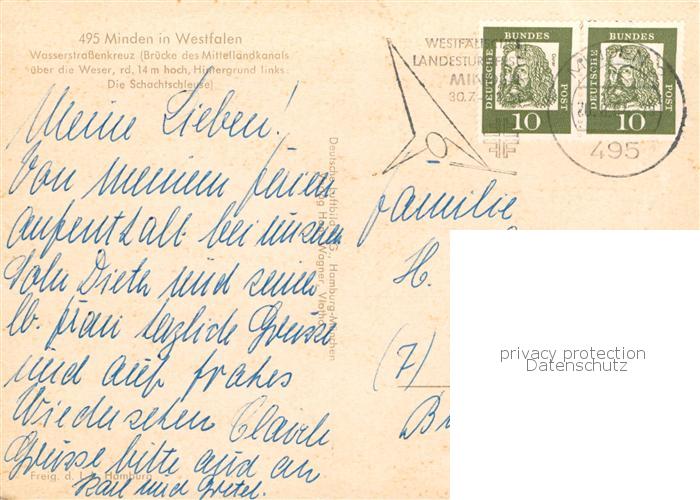 495 Minden in Westfalen
Wasserstraßenkreuz (Brücke des Mittellandkanals
über die Weser, rd. 14 m hoch, Hintergrund links:
Die Schachtschleuse)
Meine Lieben!
Von meinem
Aufenthalt bei unserem
Sohn Dieter und seiner
lb. Frau herzliche Grüsse
und auf frohes
Wiedersehen
Grüsse bitte auch an
Karl und Gretel.
Freig. d. Hamburg
Deutsche Luftbild KG., Hamburg-München
Wagner, Vlotho
WESTFÄLISCHES
LANDESTURNFEST
MIN
30.7.
DEUTSCHE BUNDES POST
10
DEUTSCHE BUNDES POST
10
495
Familie
H.
(7)
privacy protection
Datenschutz